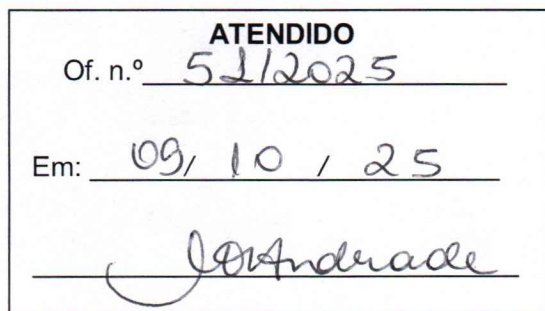 ATENDIDO
Of. n.º 51/2025
Em: 09/ 10 / 25
Andrade